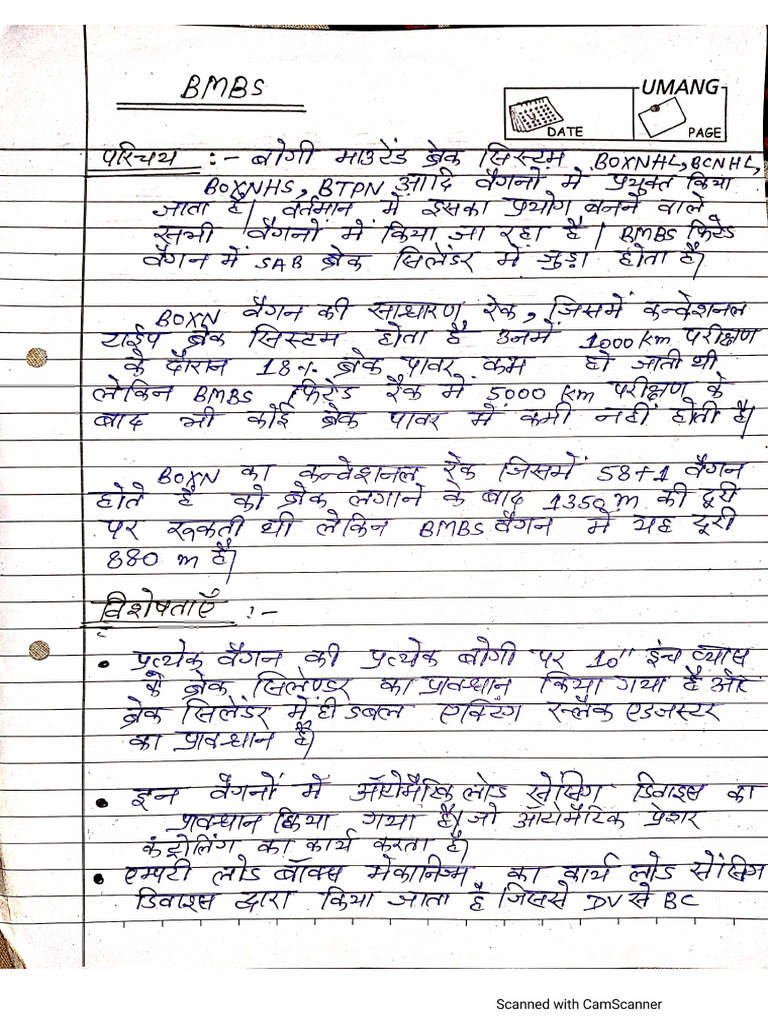 BMBS
UMANG
DATE
PAGE
परिचय :- बोगी माउटेंड ब्रेक सिस्टम BOXNHL, BCNHL,
BOXNHS, BTPN आदि वैगनों में प्रयुक्त किया
जाता है। वर्तमान में इसका प्रयोग बनने वाले
सभी वैगनों में किया जा रहा है। BMBS फिटेड
वैगन में SAB ब्रेक सिलेंडर में जुड़ा होता है।
BOXN वैगन की साधारण रेक, जिसमें कन्वेशनल
टाईप ब्रेक सिस्टम होता है उनमें 1000 km परीक्षण
के दौरान 18% ब्रेक पावर कम हो जाती थी
लेकिन BMBS फिटेड रैक में 5000 km परीक्षण के
बाद भी कोई ब्रेक पावर में कमी नहीं होती है।
BOXN का कन्वेशनल रेक जिसमें 58+1 वैगन
होते है को ब्रेक लगाने के बाद 1350 m की दूरी
पर रूकती थी लेकिन BMBS वैगन में यह दूरी
880 m है।
विशेषताएँ :-
• प्रत्येक वैगन की प्रत्येक बोगी पर 10" इंच व्यास
के ब्रेक सिलेण्डर का प्रावधान किया गया है और
ब्रेक सिलेंडर में ही डबल एक्टिंग स्लैक एडजस्टर
का प्रावधान है।
• इन वैगनों में ऑटोमैकि लोड सेंसिंग डिवाइस का
प्रावधान किया गया है। जो ऑटोमैटिक प्रेशर
कंट्रोलिंग का कार्य करता है।
• एम्पटी लोड बॉक्स मेकानिज्म का कार्य लोड सेंसिंग
डिवाइस द्वारा किया जाता है जिससे DV से BC
Scanned with CamScanner